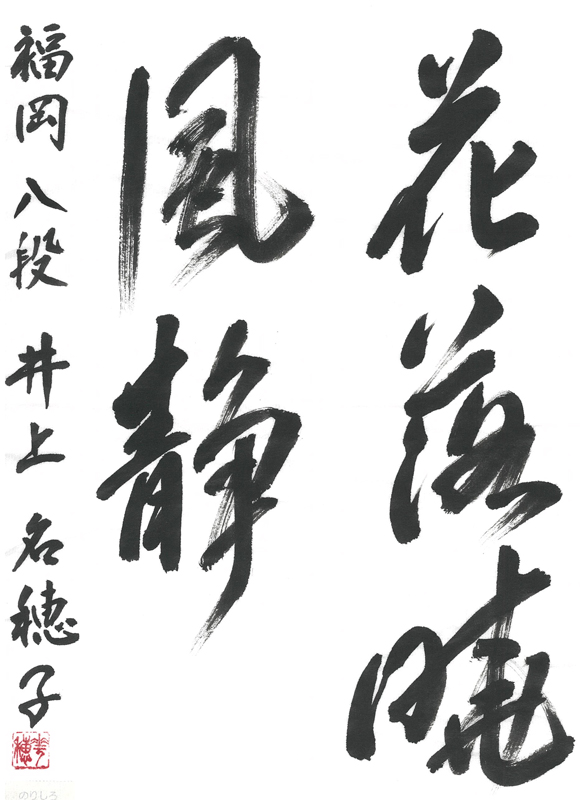 花落暁
風静
福岡 八段 井上 名穂子
のりしろ